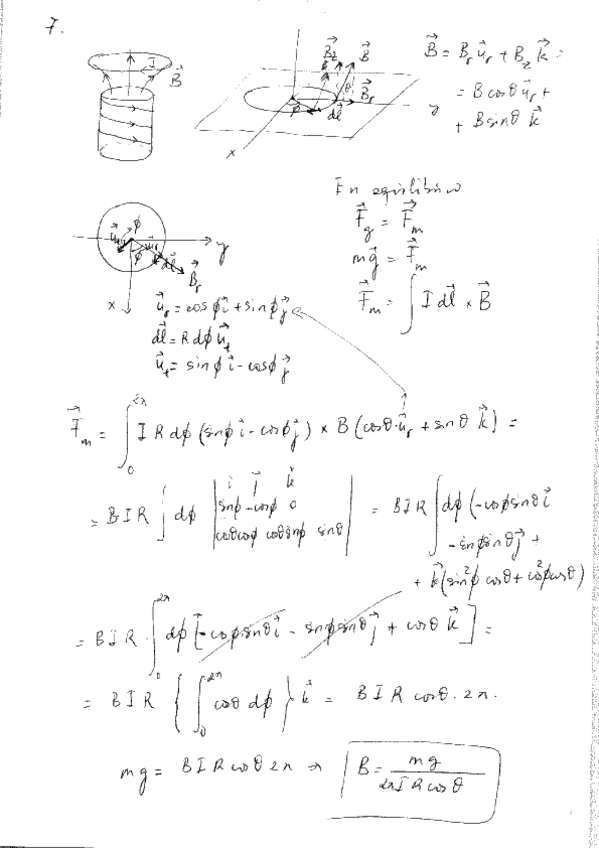 7.
I
B⃗
B⃗z B⃗
θ B⃗r
φ dl⃗
y
x
B⃗ = Br u⃗r + Bz k⃗ =
= B cosθ u⃗r +
+ B sinθ k⃗
En equilibrio
F⃗g = F⃗m
mg⃗ = F⃗m
F⃗m = ∫ I dl⃗ × B⃗
φ
u⃗t
φ u⃗r
dl⃗
B⃗r
y
x
u⃗r = cosφ i⃗ + sinφ j⃗
dl⃗ = R dφ u⃗t
u⃗t = sinφ i⃗ - cosφ j⃗
F⃗m = ∫₀^2π I R dφ (sinφ i⃗ - cosφ j⃗) × B (cosθ · u⃗r + sinθ k⃗) =
= B I R ∫ dφ | i⃗ j⃗ k⃗ | = B I R ∫ dφ (-cosφ sinθ i⃗
| sinφ -cosφ 0 | - sinφ sinθ j⃗ +
| cosθ cosφ cosθ sinφ sinθ | + k⃗ (sin²φ cosθ + cos²φ cosθ)
= B I R · ∫₀^2π dφ [-cosφ sinθ i⃗ - sinφ sinθ j⃗ + cosθ k⃗] =
= B I R { ∫₀^2π cosθ dφ } · k⃗ = B I R cosθ · 2π.
mg = B I R cosθ 2π ⇒ B = mg / 2π I R cosθ